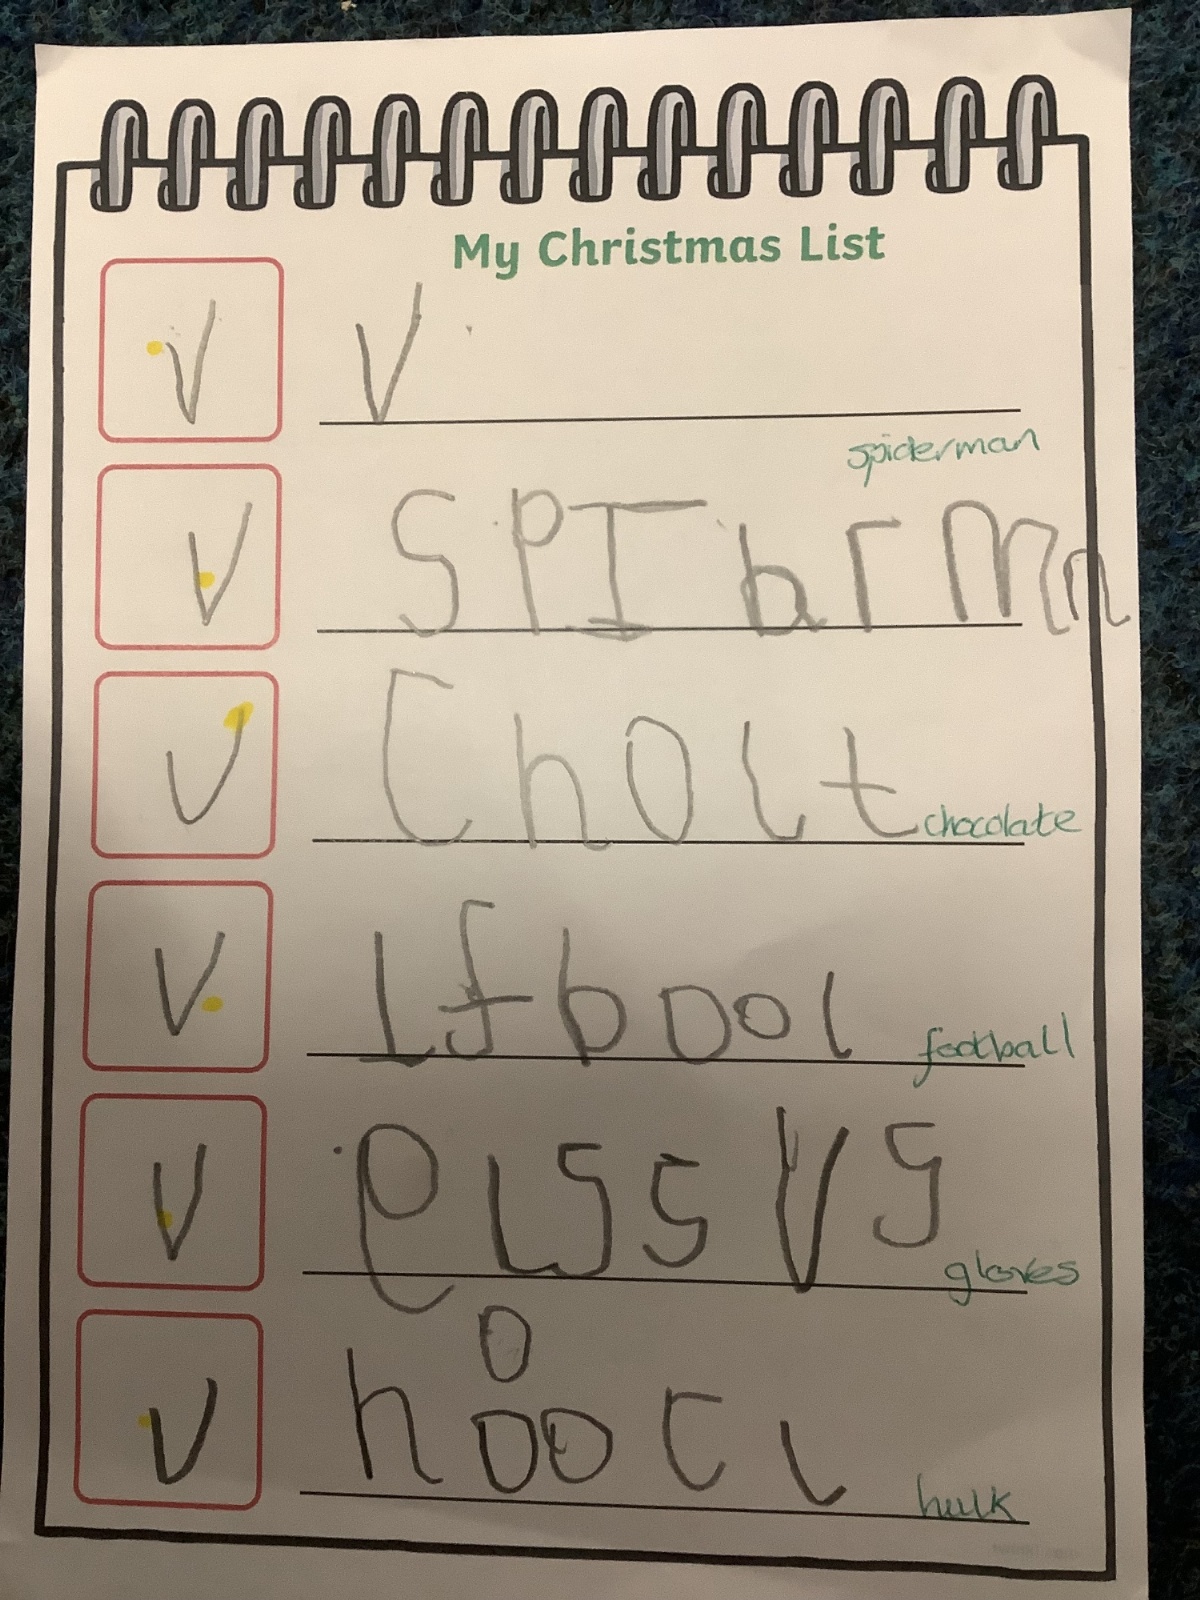 My Christmas List
V V
spiderman
V SPIbrMn
V Cholt chocolate
V lfbool football
V elssVs gloves
o
V hoocl hulk